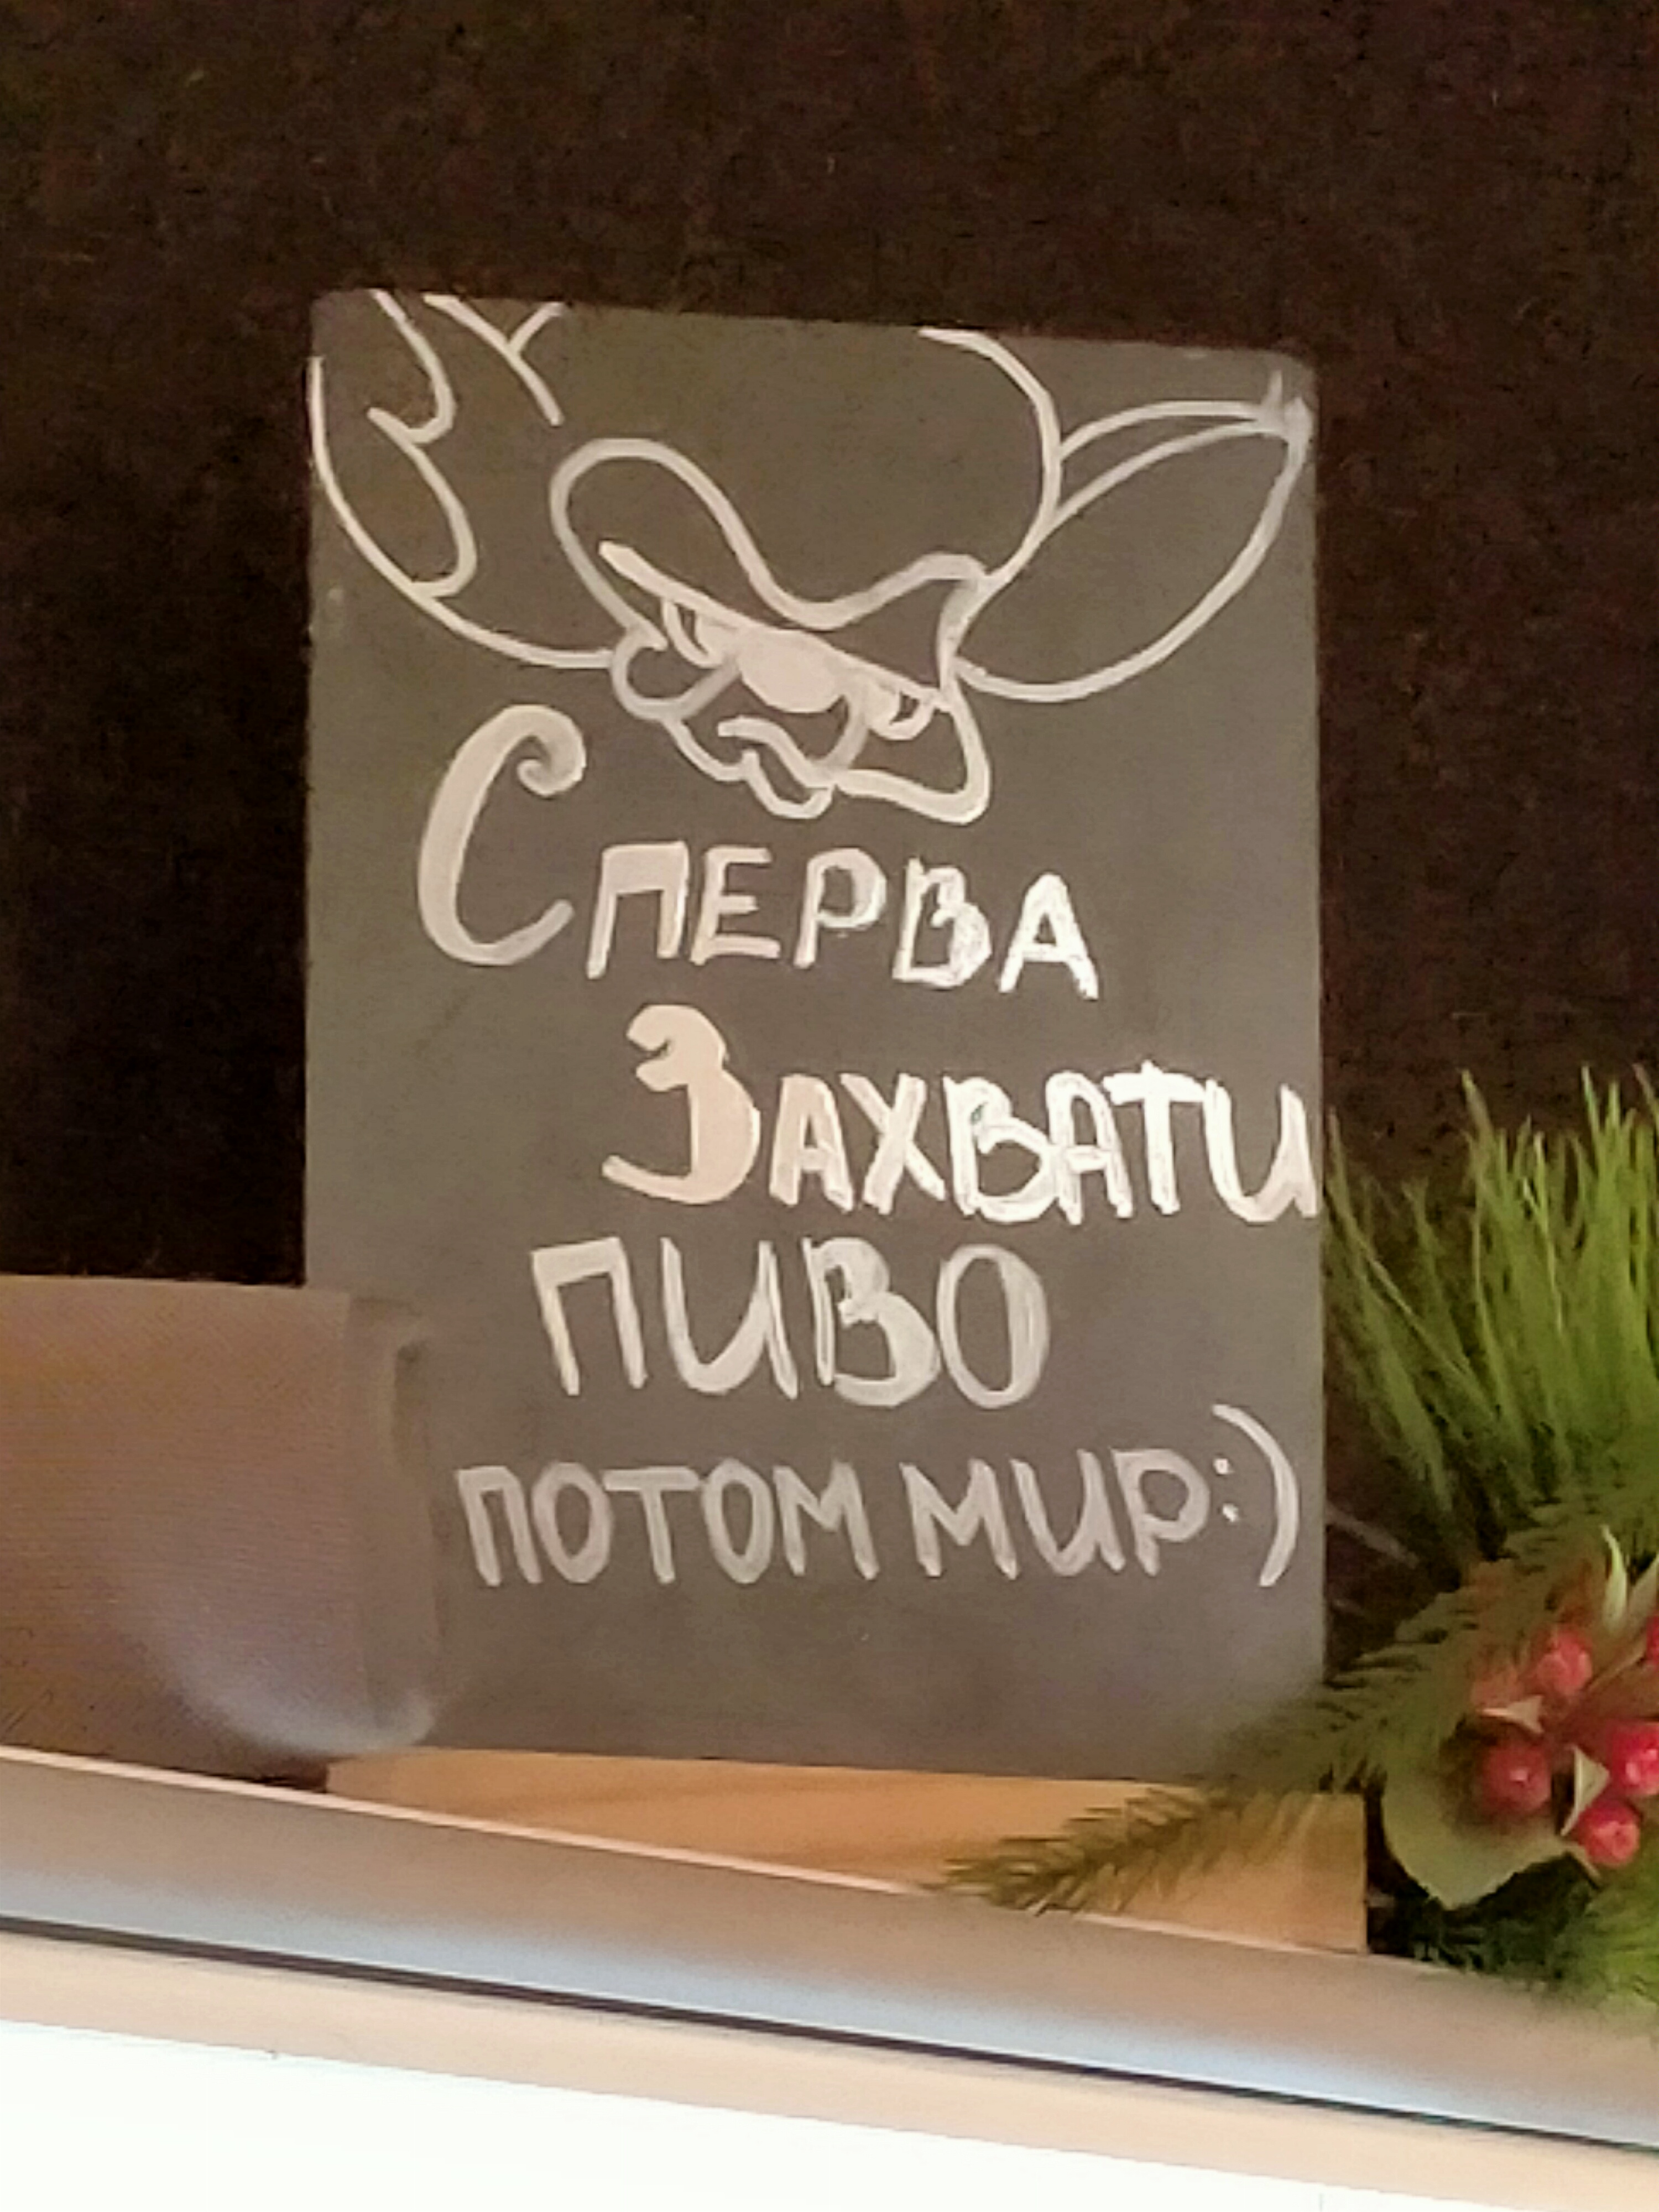 Сперва
Захвати
пиво
потом мир:)